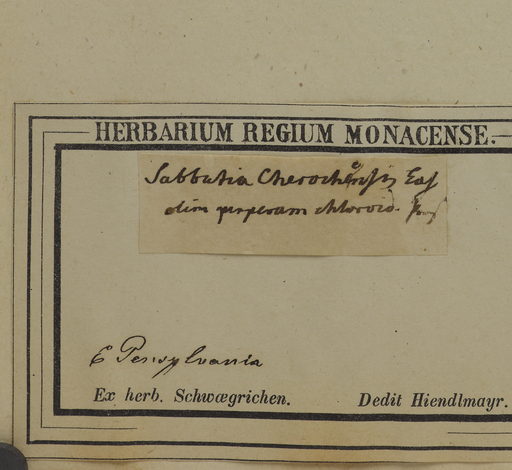 HERBARIUM REGIUM MONACENSE.
Sabbatia
olim perperam chloroid.
E Pensylvania
Ex herb. Schwægrichen. Dedit Hiendlmayr.